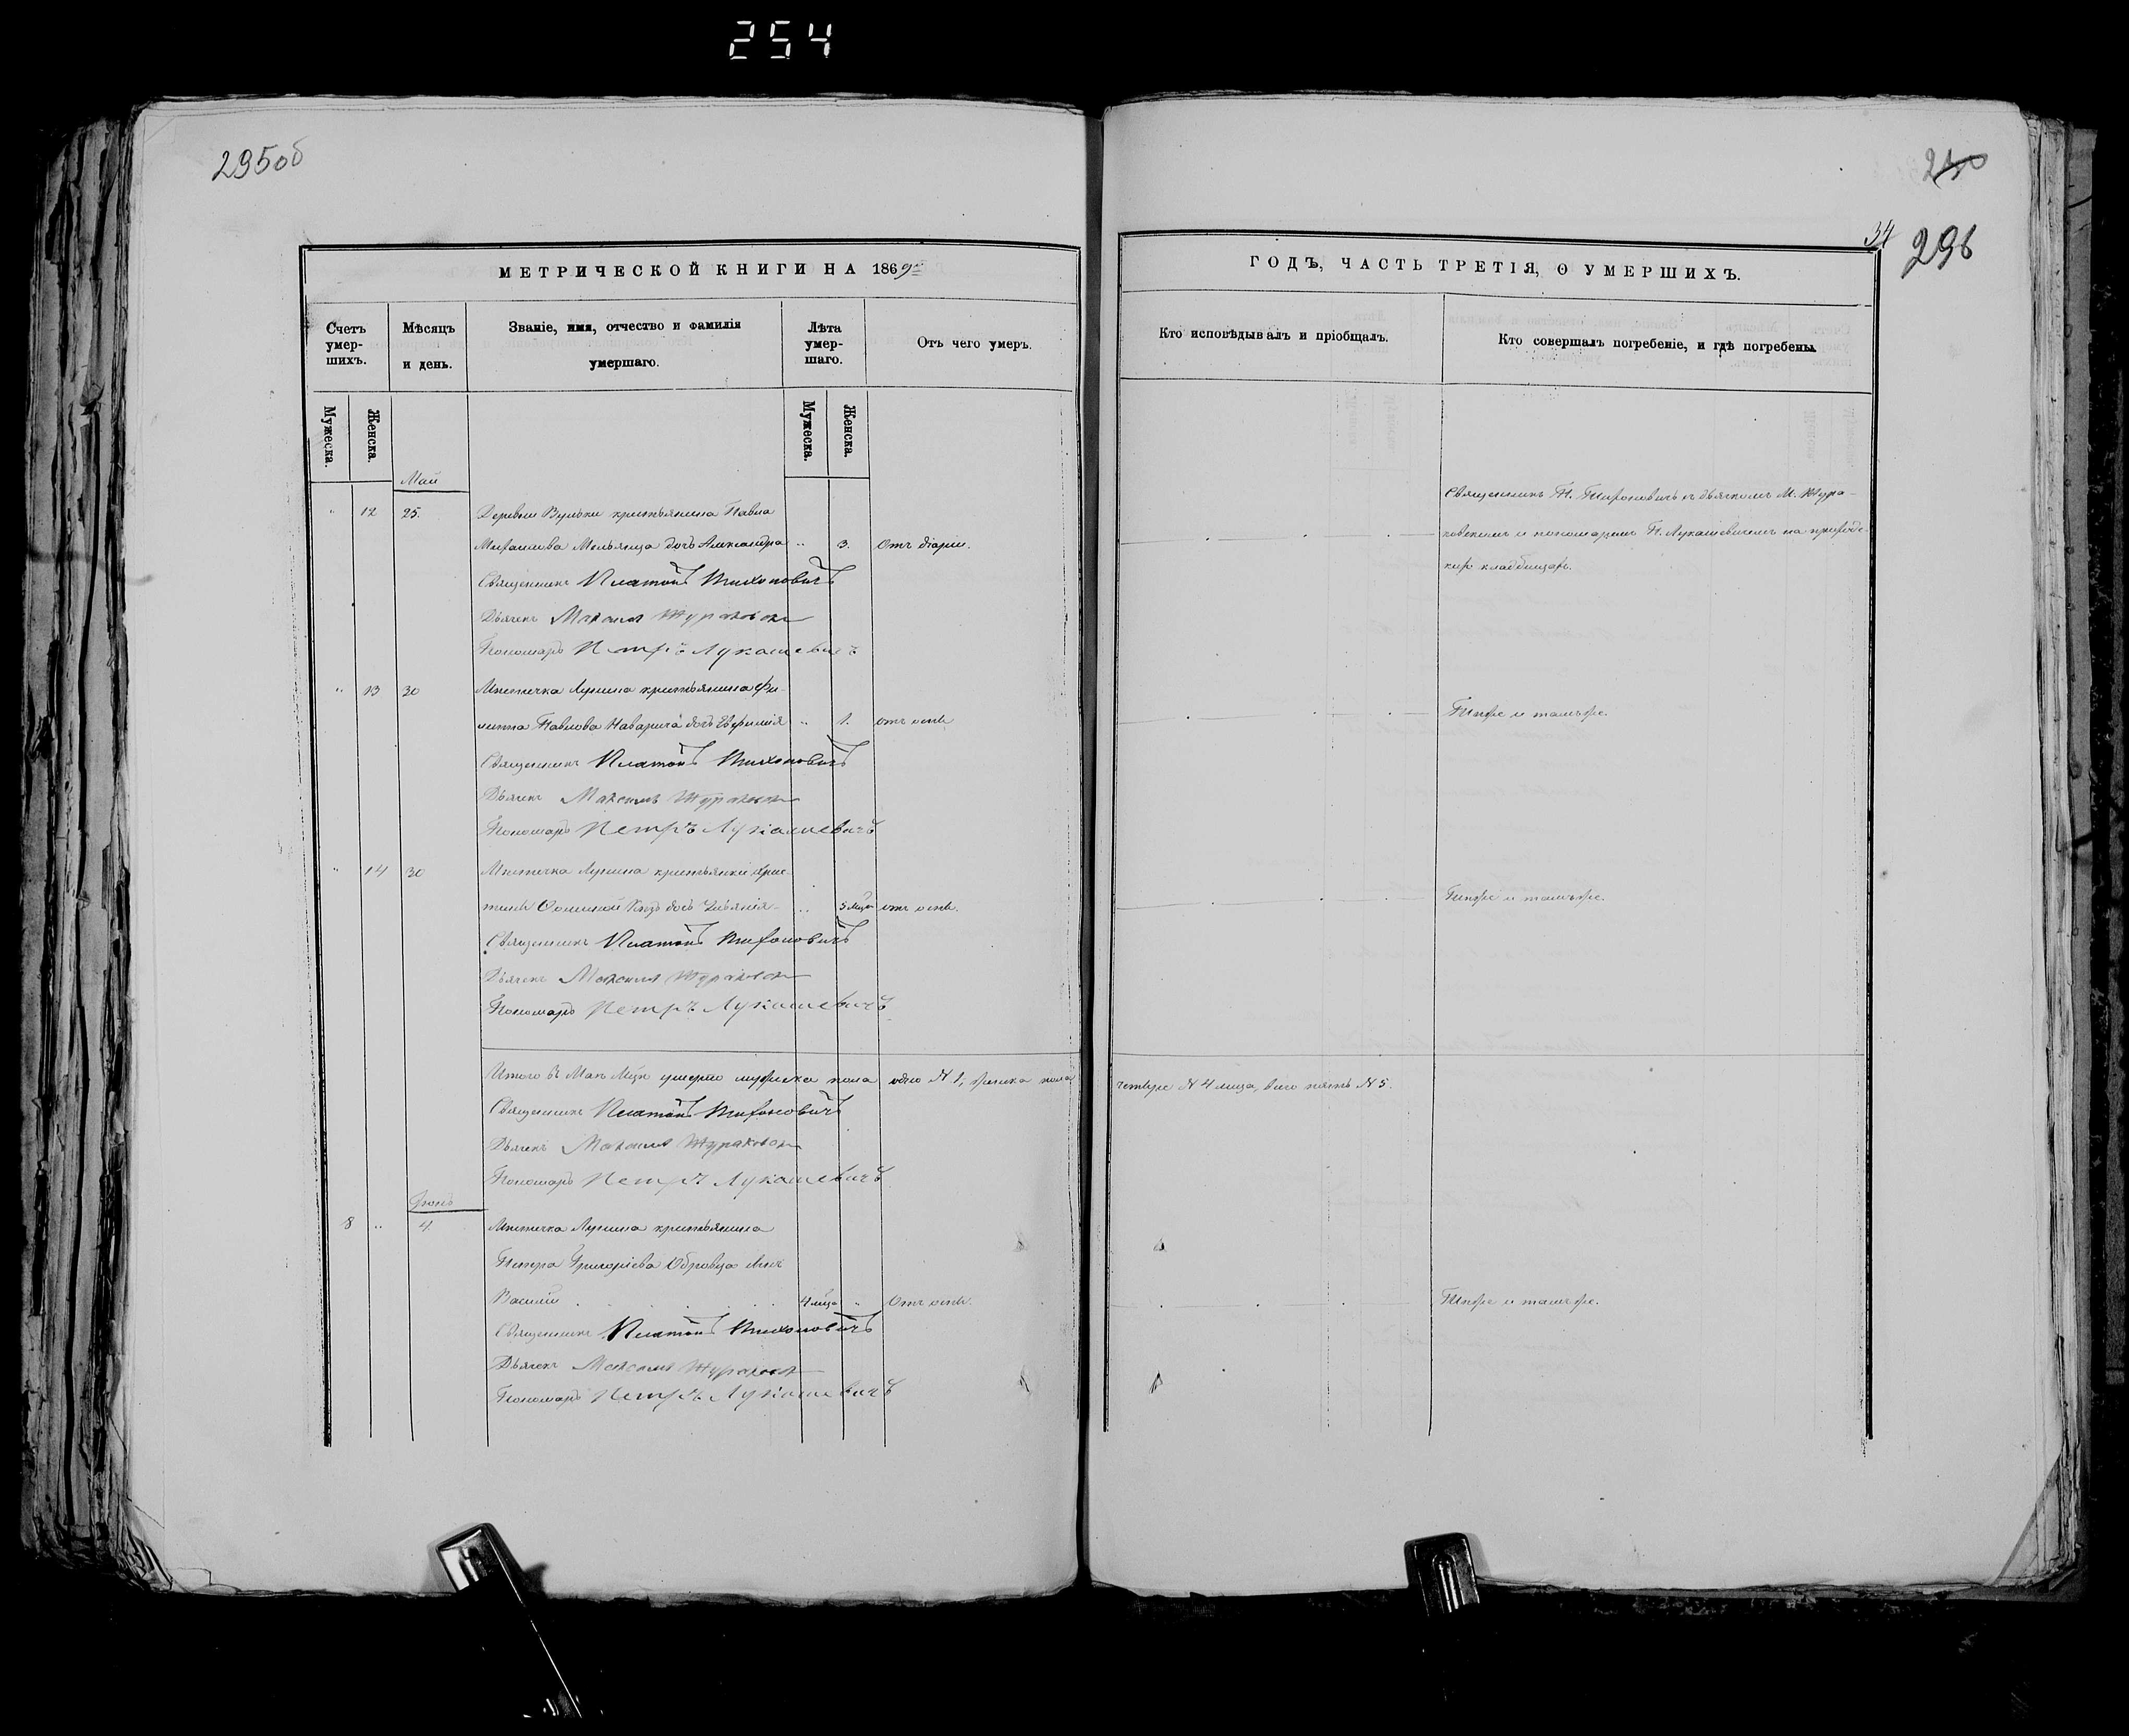 254
295об
МЕТРИЧЕСКОЙ КНИГИ НА 1869й
Счетъ умершихъ.
Мѣсяцъ и день.
Званіе, имя, отчество и фамилія умершаго.
Лѣта умершаго.
Отъ чего умеръ.
Мужеска.
Женска.
Мужеска.
Женска.
Май
" 12 25. Деревни Вульки крестьянина Павла
дочь Александра " 3. Отъ діаріи.
Священникъ Платонъ Тихоновичъ
Дьячекъ Максимъ
Пономарь Петръ Лукашевичъ
" 13 30 Мѣстечка Лунина крестьянина Фи-
липпа Павлова дочь Евфимія " 1. отъ оспы
Священникъ Платонъ Тихоновичъ
Дьячекъ Максимъ
Пономарь Петръ Лукашевичъ
" 14 30 Мѣстечка Лунина крестьянки Хрис-
тины дочь " 5 мцъ отъ оспы.
Священникъ Платонъ Тихоновичъ
Дьячекъ Максимъ
Пономарь Петръ Лукашевичъ
Итого въ Маѣ Мцѣ умерло мужеска пола одно № 1, женска пола
Священникъ Платонъ Тихоновичъ
Дьячекъ Максимъ
Пономарь Петръ Лукашевичъ
Іюнь
8 " 4. Мѣстечка Лунина крестьянина
Петра Григоріева сынъ
Василій 4 мцъ " Отъ оспы.
Священникъ Платонъ Тихоновичъ
Дьячекъ Максимъ
Пономарь Петръ Лукашевичъ
34
296
ГОДЪ, ЧАСТЬ ТРЕТІЯ, О УМЕРШИХЪ.
Кто исповѣдывалъ и пріобщалъ.
Кто совершалъ погребеніе, и гдѣ погребены.
Священникъ П. Тихоновичъ съ дьячкомъ М. Жура-
ковскимъ и пономаремъ П. Лукашевичемъ на приходс-
комъ кладбищѣ.
Тѣмже и тамъже.
Тѣмже и тамъже.
четыре № 4 лица, всего пять № 5.
Тѣмже и тамъже.